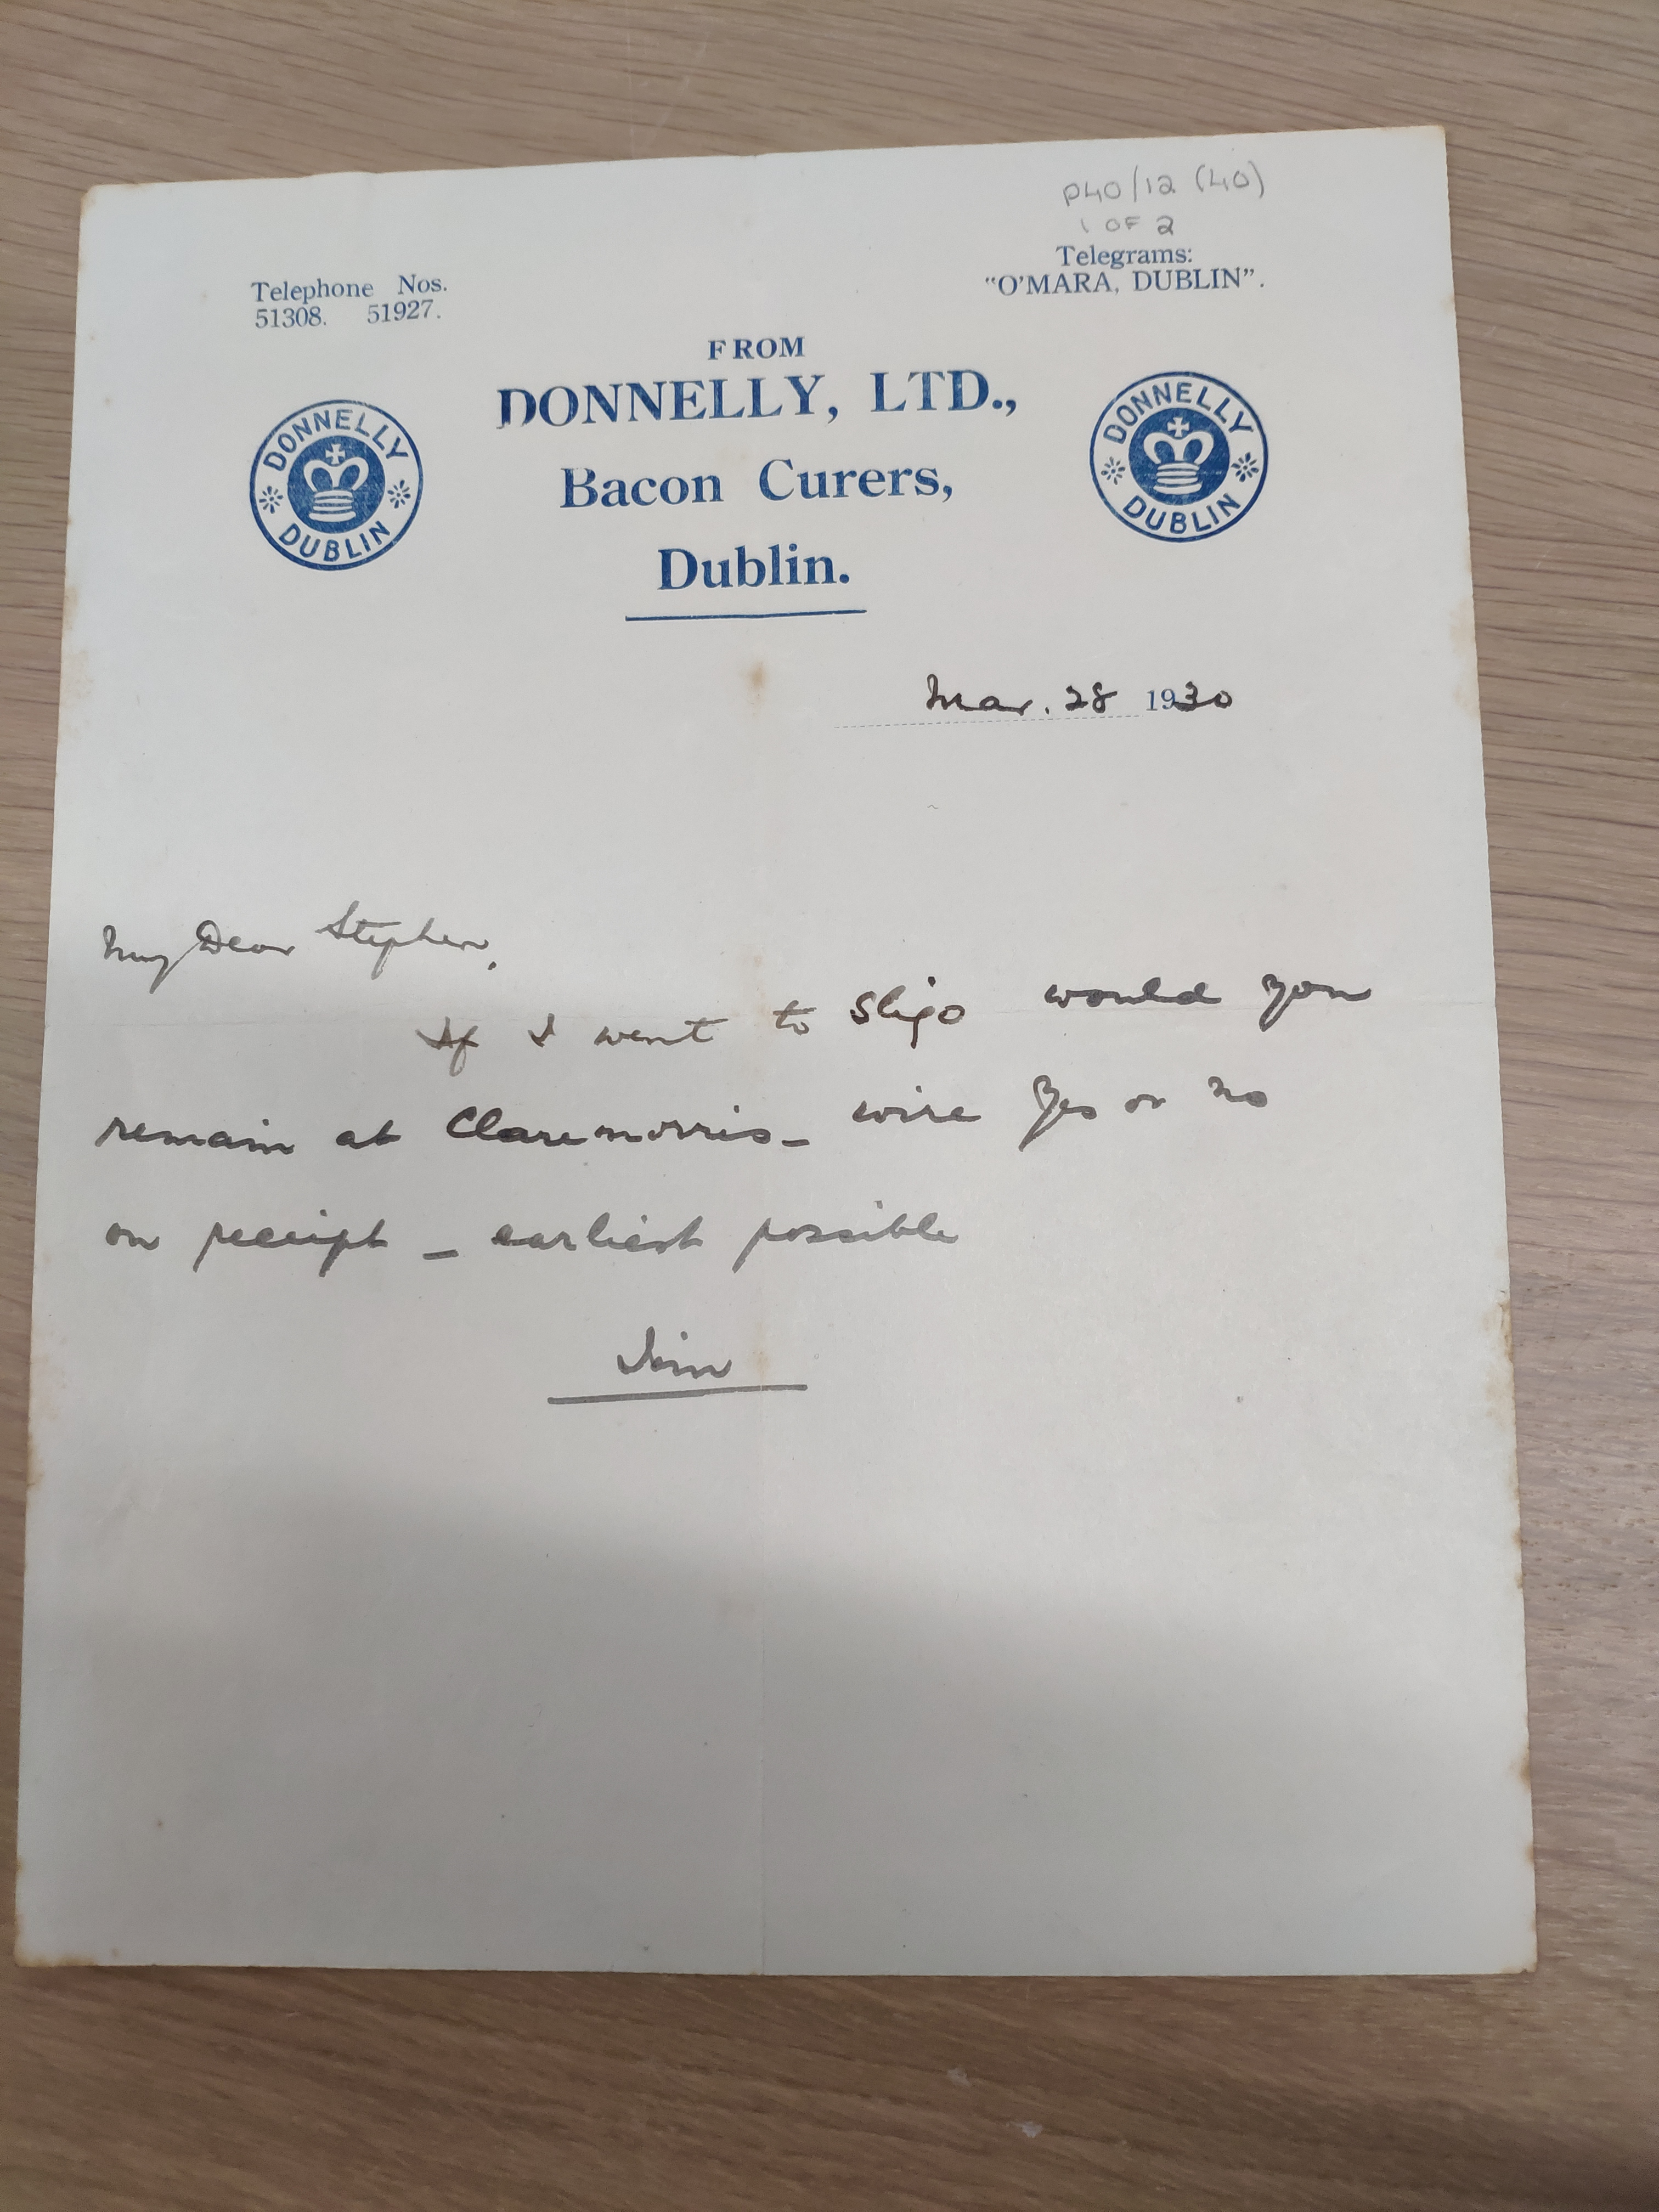 P40/12 (40)
1 OF 2
Telephone Nos.
51308. 51927.
Telegrams:
"O'MARA, DUBLIN".
FROM
DONNELLY, LTD.,
Bacon Curers,
Dublin.
DONNELLY
DUBLIN
DONNELLY
DUBLIN
Mar. 28 1930
My Dear Stephen,
If I went to Sligo would you
remain at Claremorris – wire Yes or no
on receipt – earliest possible
Jim